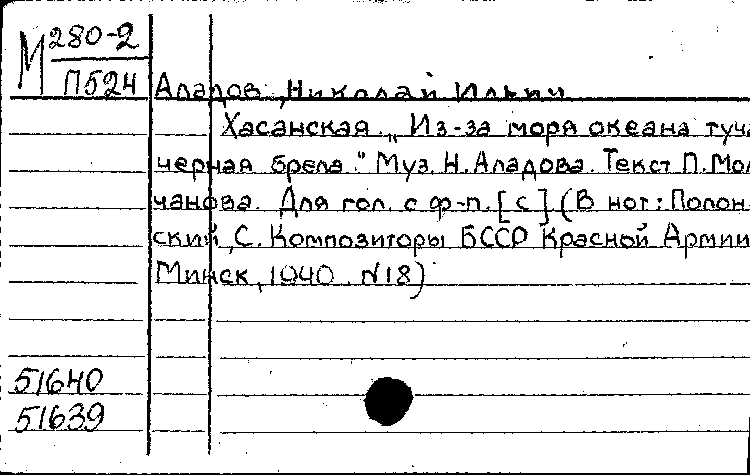 М 280-2
П524
Аладов, Николай Ильич
Хасанская. „Из-за моря океана туча
черная брела." Муз. Н. Аладова. Текст П. Мол-
чанова. Для гол. с ф-п. [с] (В нот: Полон-
ский, С. Композиторы БССР Красной Армии
Минск, 1940. №18)
51640
51639